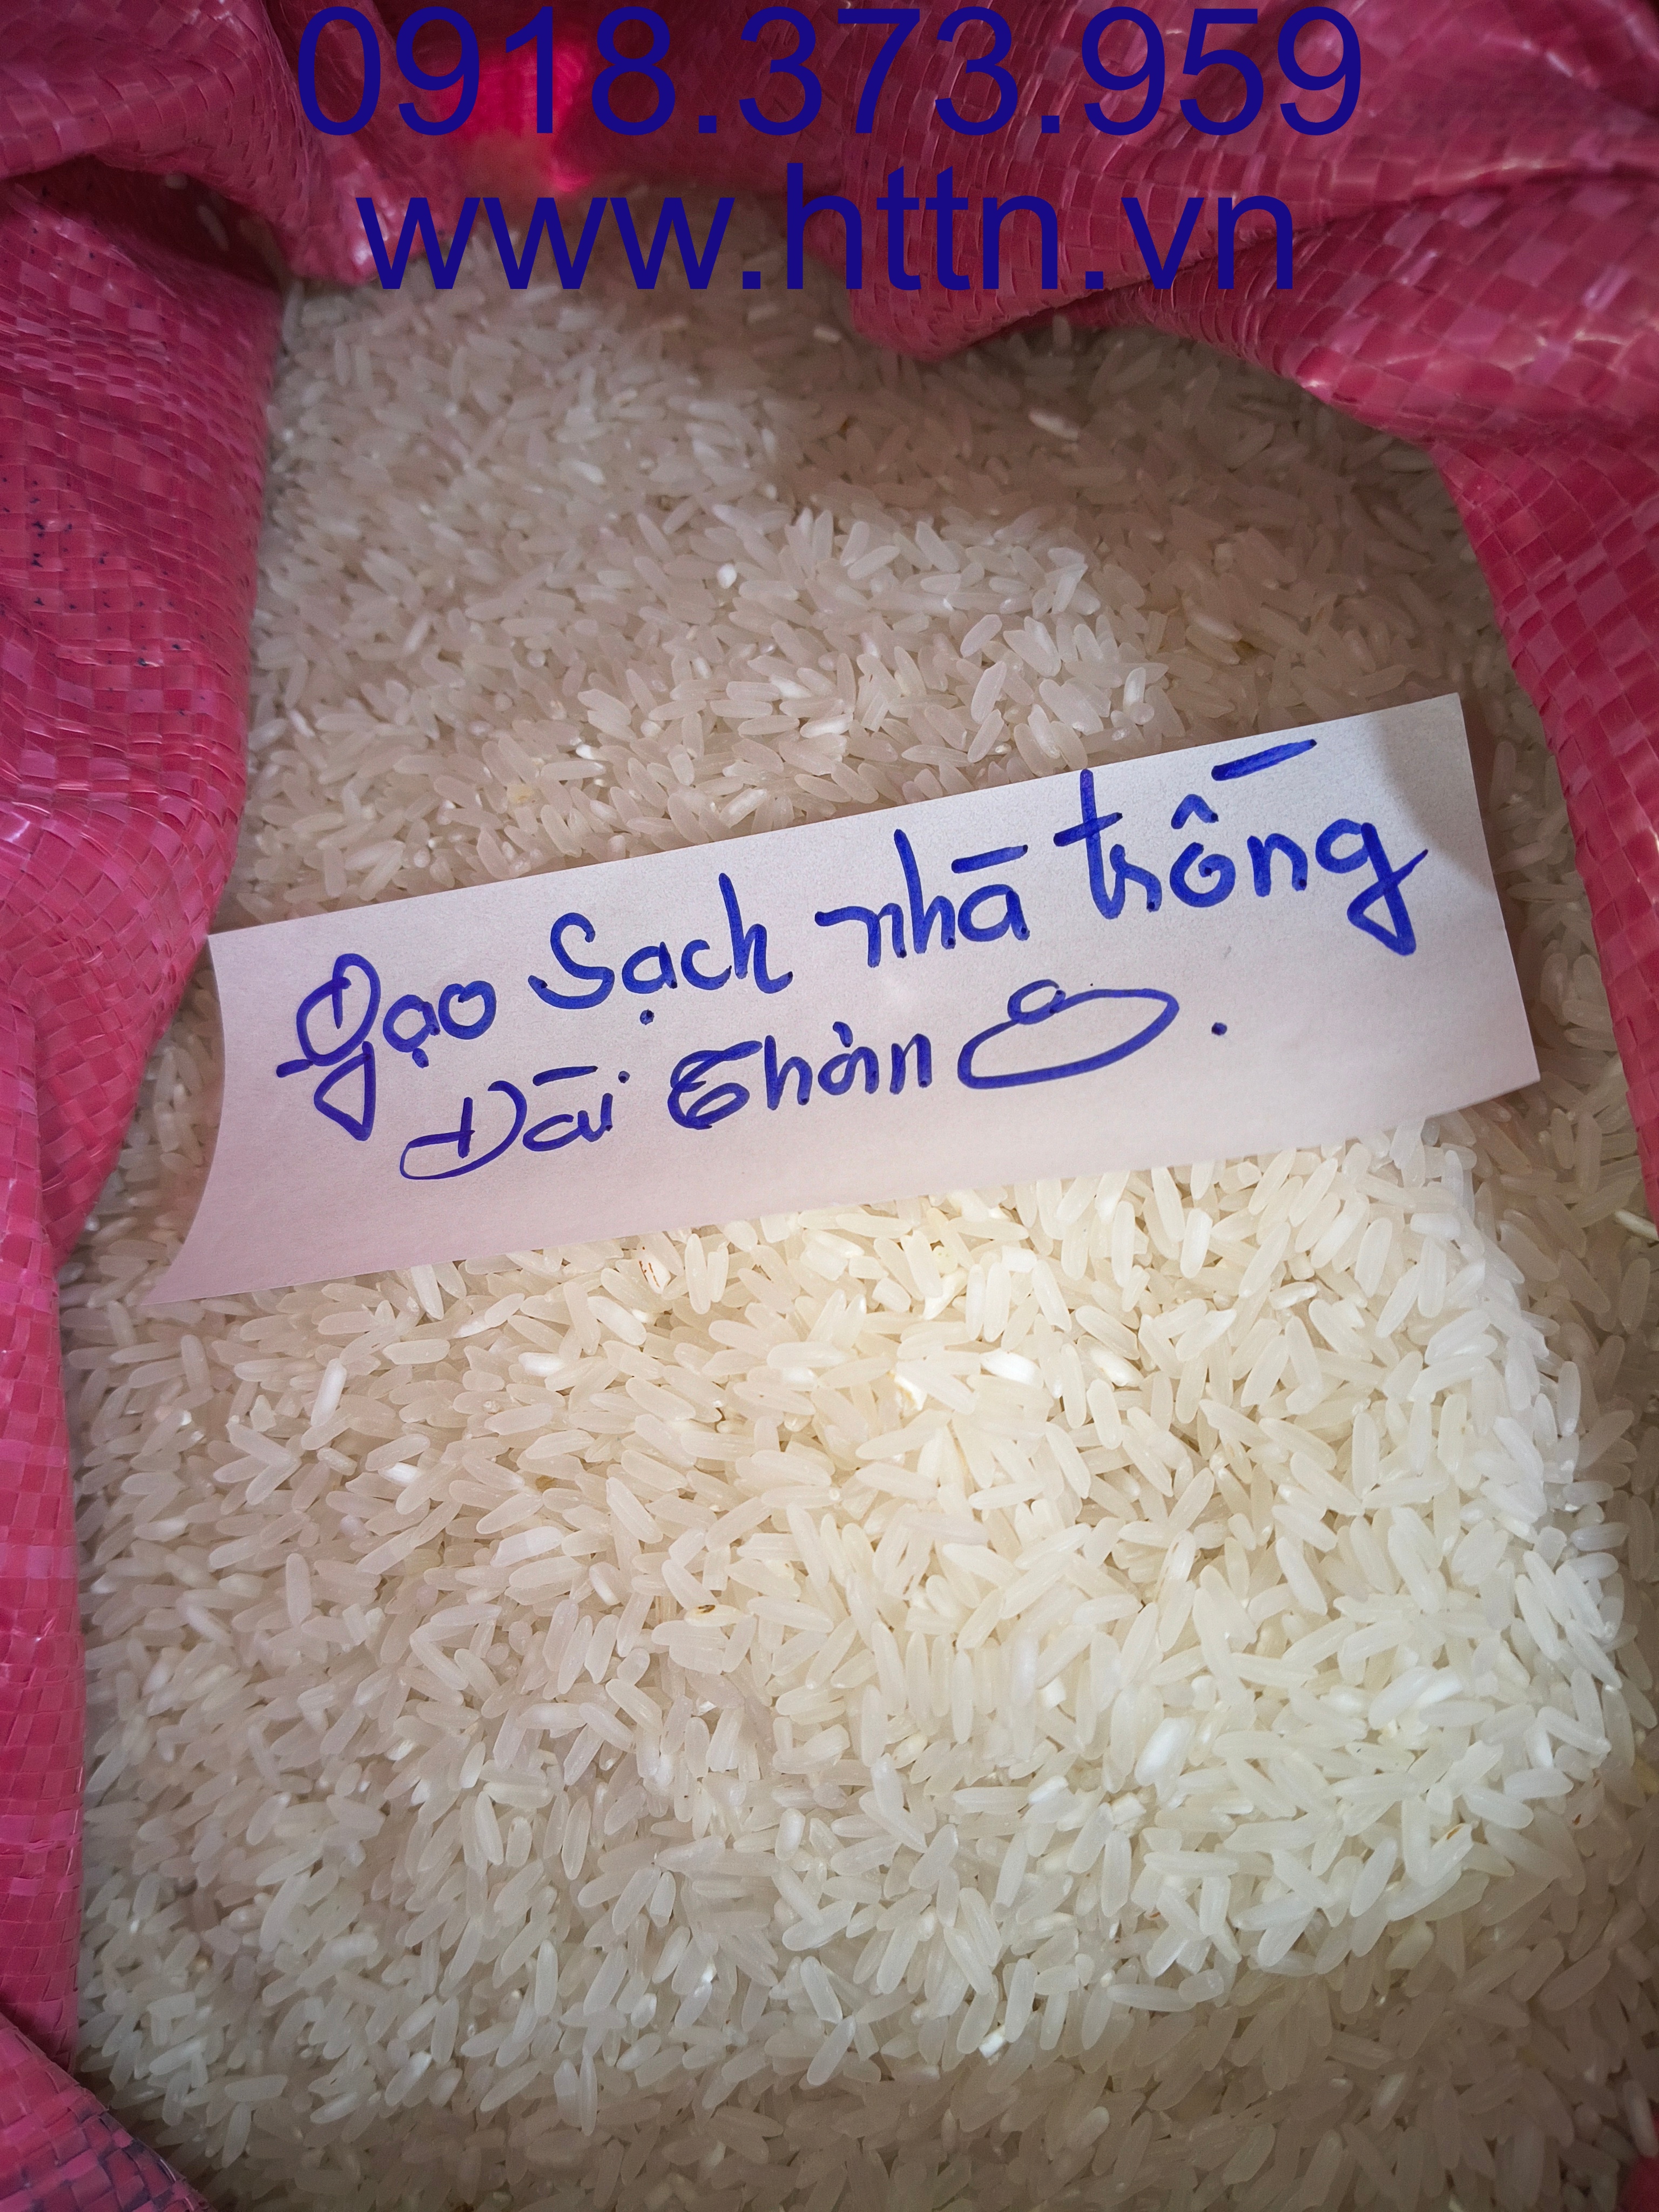 0918.373.959
www.httn.vn
Gạo sạch nhà trồng
Đài Thơm 8.